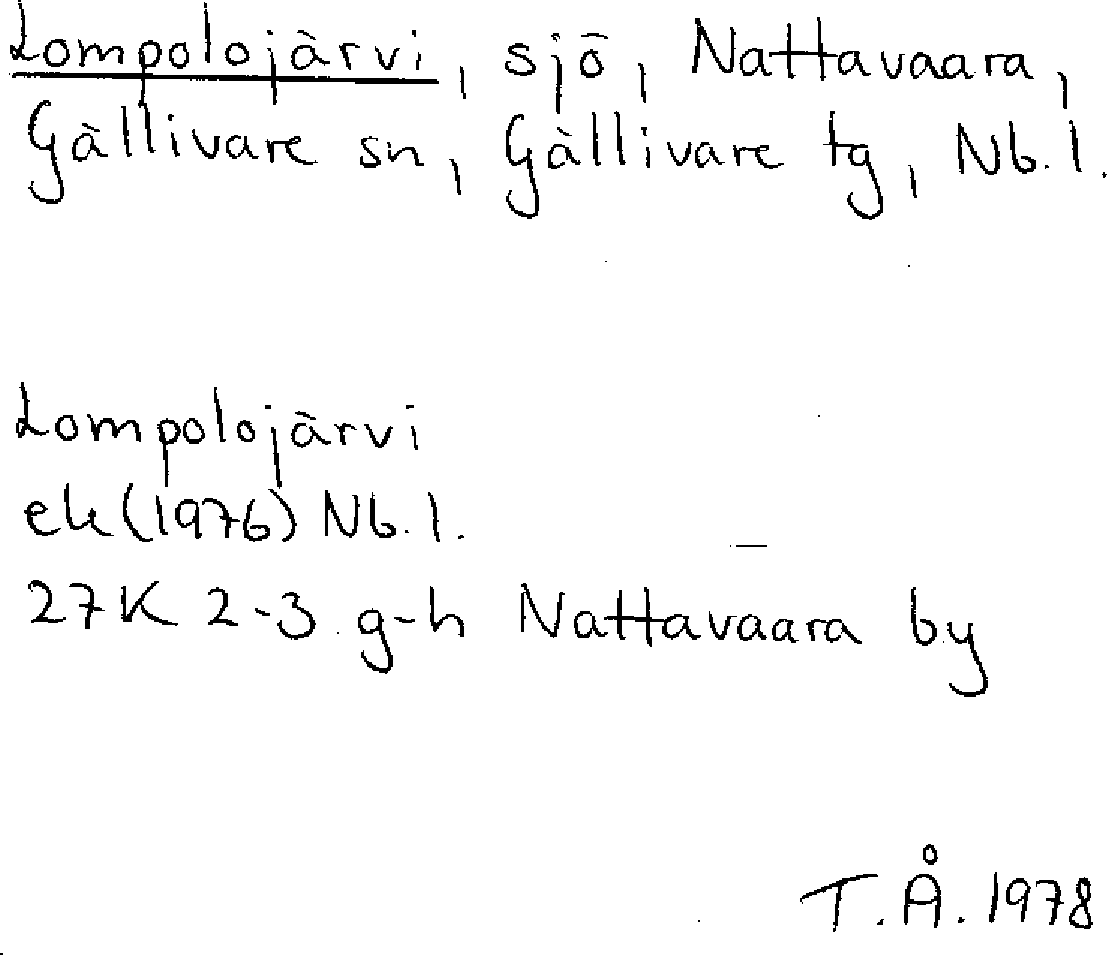 Lompolojärvi, sjö, Nattavaara,
Gällivare sn, Gällivare tg, Nb. l.
Lompolojärvi
ek (1976) Nb. l.
27K 2-3 g-h Nattavaara by
T.Å. 1978